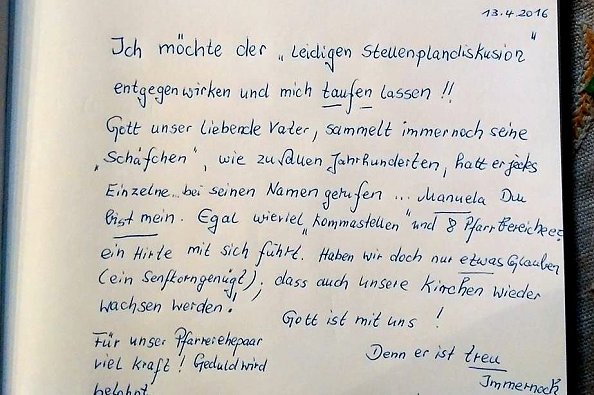 13.4.2016
Ich möchte der „Leidigen Stellenplandiskusion"
entgegenwirken und mich taufen lassen !!
Gott unser liebende Vater, sammelt immernoch seine
„Schäfchen", wie zu allen Jahrhunderten, hatt er jedes
Einzelne.. bei seinen Namen gerufen ... Manuela Du
bist mein. Egal wieviel „Kommastellen" und 8 Pfarrbereiche
ein Hirte mit sich führt. Haben wir doch nur etwas Glauben
(ein Senfkorn genügt); dass auch unsere Kirchen wieder
wachsen werden!
Gott ist mit uns !
Für unser Pfarrerehepaar
viel Kraft! Geduld wird
belohnt
Denn er ist treu
Immernoch